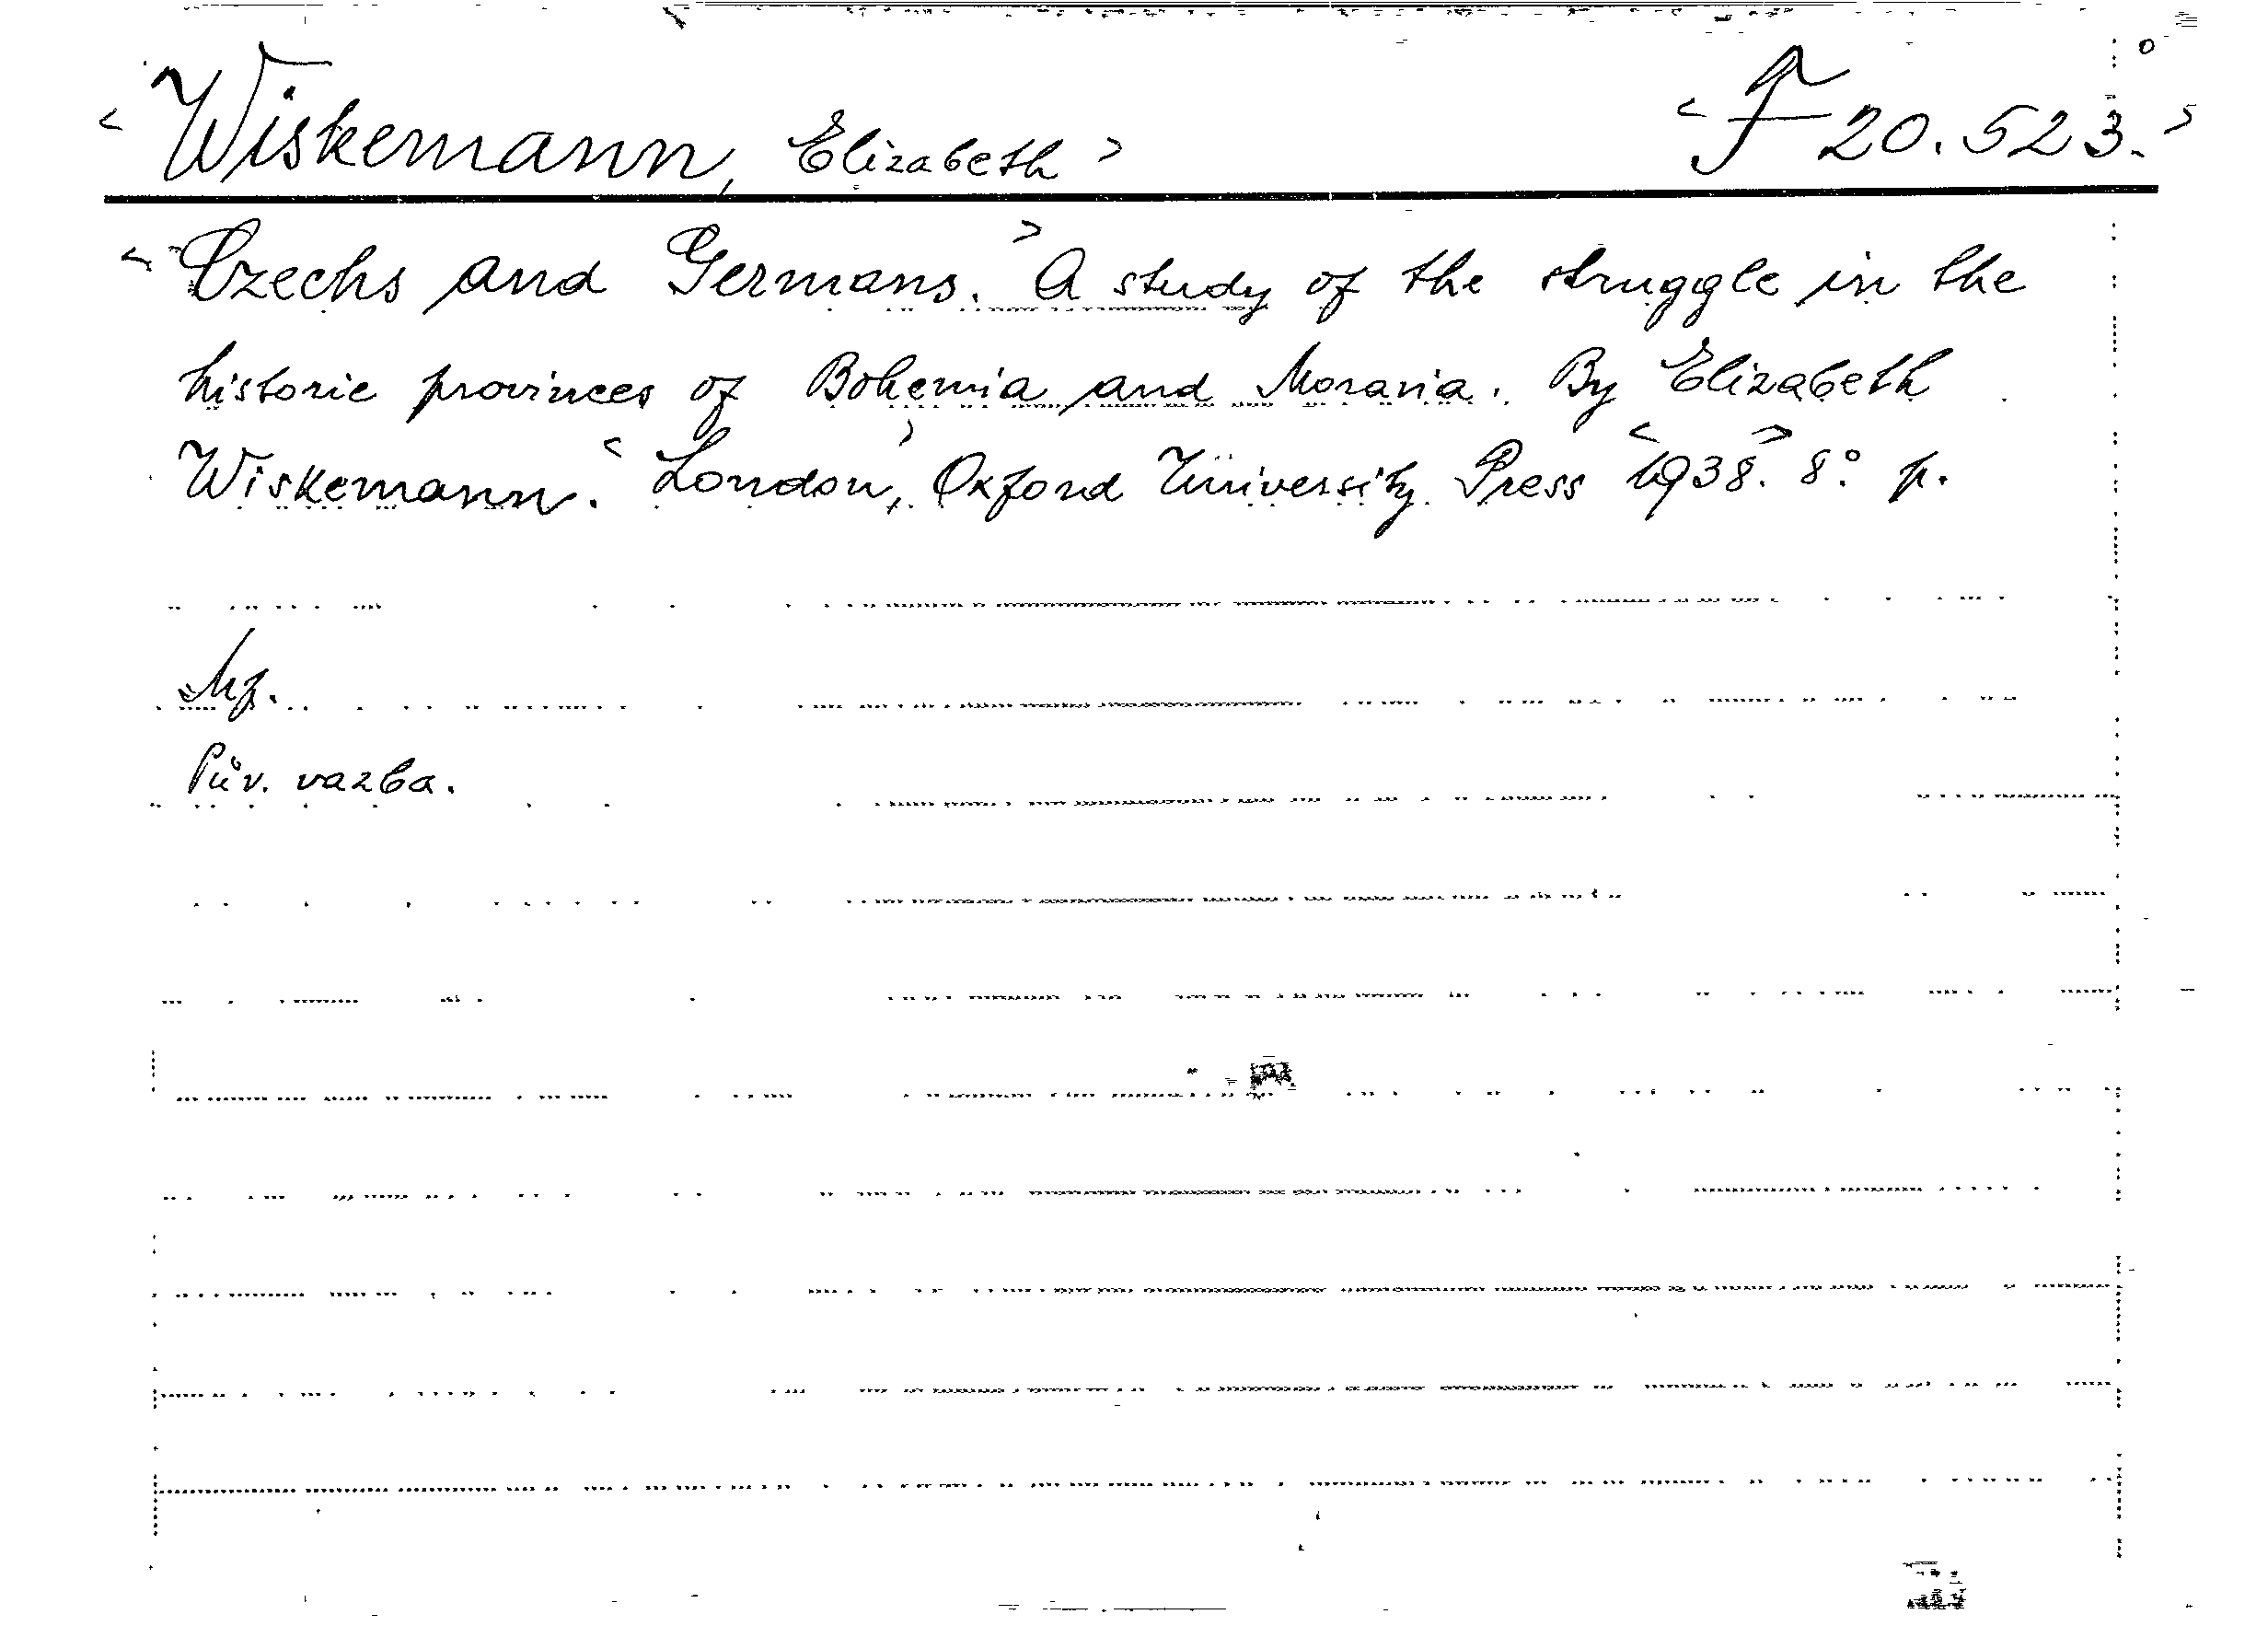 <Wiskemann, Elizabeth> <F 20.523.>
<Czechs and Germans.> A study of the struggle in the
historic provinces of Bohemia and Moravia. By Elizabeth
Wiskemann. <London,> Oxford University Press <1938.> 8° p.
Pův. vazba.